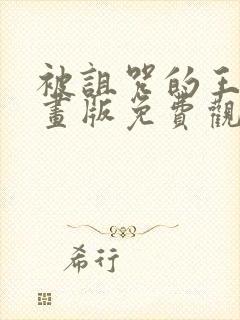 被詛咒的王
畫版免費觀
希行